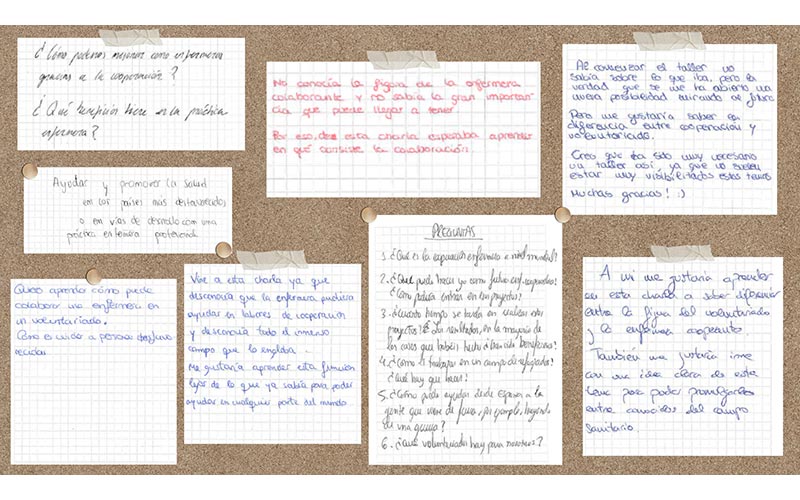 ¿Cómo podemos mejorar como enfermeras
gracias a la cooperación?
¿Qué beneficios tiene en la práctica
enfermera?
No conocía la figura de la enfermera
colaborante y no sabía la gran importan
cia que puede llegar a tener.
Por eso, de esta charla esperaba aprender
en qué consiste la colaboración.
Al comenzar el taller no
sabía sobre lo que iba, pero la
verdad que se me ha abierto una
nueva posibilidad mirando al futuro
Pero me gustaría saber la
diferencia entre cooperación y
voluntariado.
Creo que ha sido muy necesario
un taller así, ya que no suelen
estar muy visibilitados estos temas
Muchas gracias! :)
Ayudar y promover la salud
en los países más desfavorecidos
o en vías de desarrollo con una
práctica enfermera profesional
Quiero aprender cómo puede
colaborar una enfermera en
un voluntariado.
Cómo es cuidar a personas desfavo-
recidas
Vine a esta charla ya que
desconocía que la enfermera pudiera
ayudar en labores de cooperación
y desconocía todo el inmenso
campo que lo engloba.
Me gustaría aprender esta función
lejos de lo que ya sabía para poder
ayudar en cualquier parte del mundo
PREGUNTAS
1. ¿Qué es la cooperación enfermera a nivel mundial?
2. ¿Qué puedo hacer yo como futura enf.
¿Cómo podría entrar en los proyectos?
3. ¿Cuánto tiempo se tarda en realizar estos
proyectos? ¿Los resultados, en la mayoría de
los casos que habéis hecho han sido beneficiosos?
4. ¿Cómo es trabajar en un campo de refugiados?
¿Qué hay que hacer?
5. ¿Cómo puedo ayudar desde España a la
gente que viene de fuera, por ejemplo, huyendo
de una guerra?
6. ¿Qué voluntariados hay para nosotros?
A mi me gustaría aprender
en esta charla a saber diferenciar
entre la figura del voluntariado
y la enfermera cooperante.
También me gustaría irme
con una idea clara de este
tema para poder promulgarlos
entre conocidos del campo
sanitario.